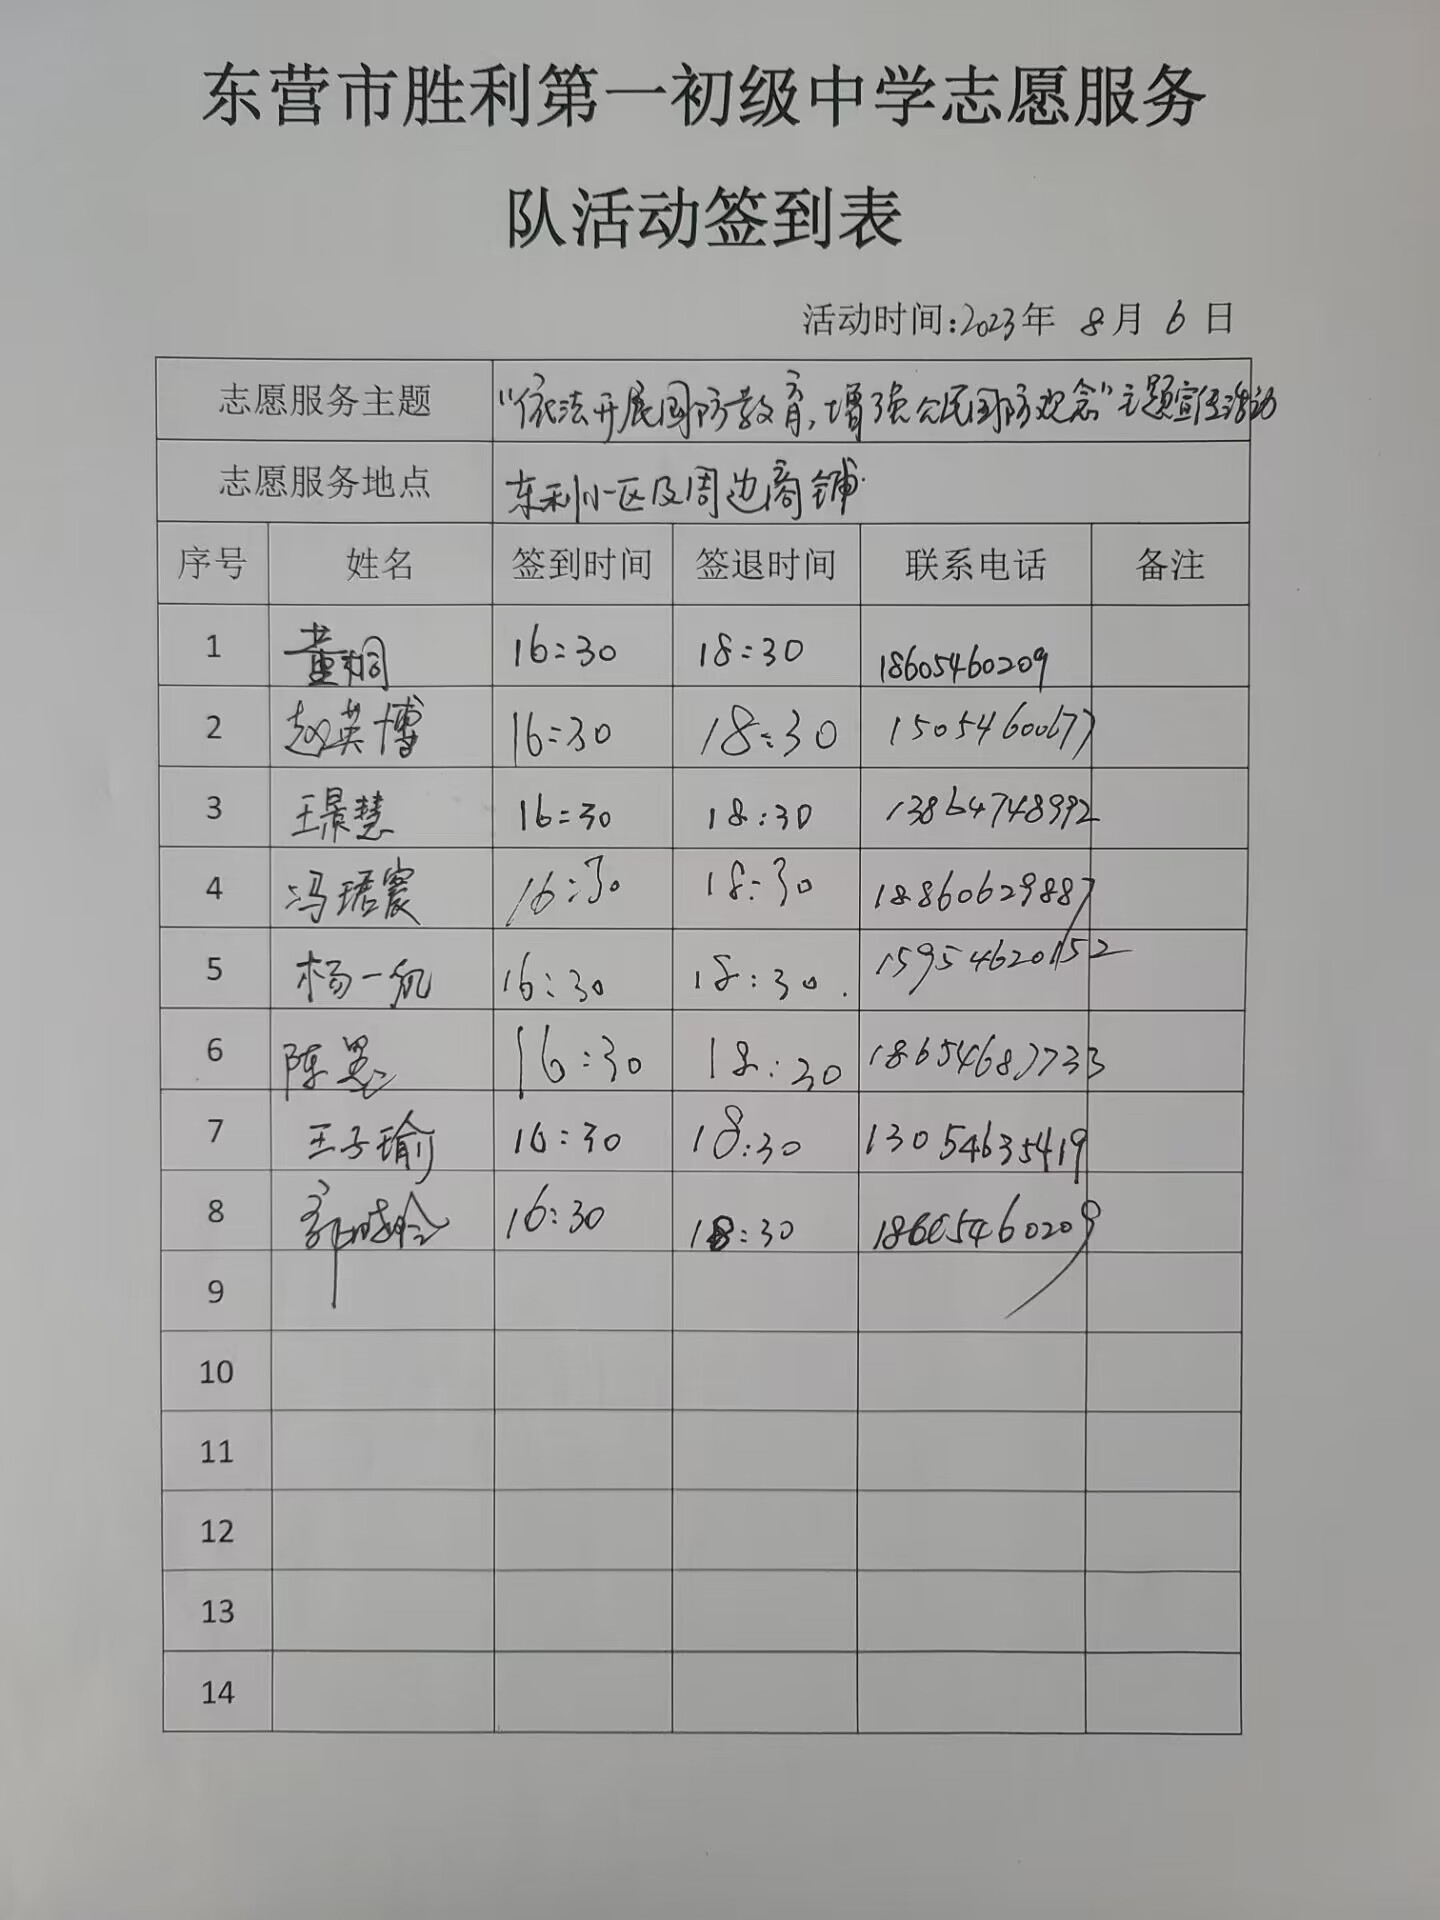 东营市胜利第一初级中学志愿服务
队活动签到表
活动时间:2023年 8月 6日
志愿服务主题 "依法开展国防教育,增强公民国防观念"主题宣传活动
志愿服务地点 东利小区及周边商铺
序号 姓名 签到时间 签退时间 联系电话 备注
1 董桐 16:30 18:30 18605460209
2 赵英博 16:30 18:30 15054600677
3 王景慧 16:30 18:30 13864748992
4 冯珺震 16:30 18:30 18860629887
5 杨一凡 16:30 18:30. 15954620152
6 陈 16:30 18:30 18654687733
7 王子瑜 16:30 18:30 13054635419
8 郭 16:30 18:30 18605460209
9
10
11
12
13
14